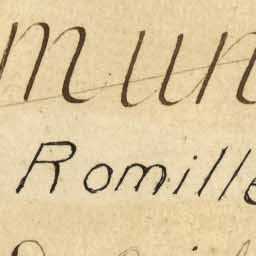 mun
Romille